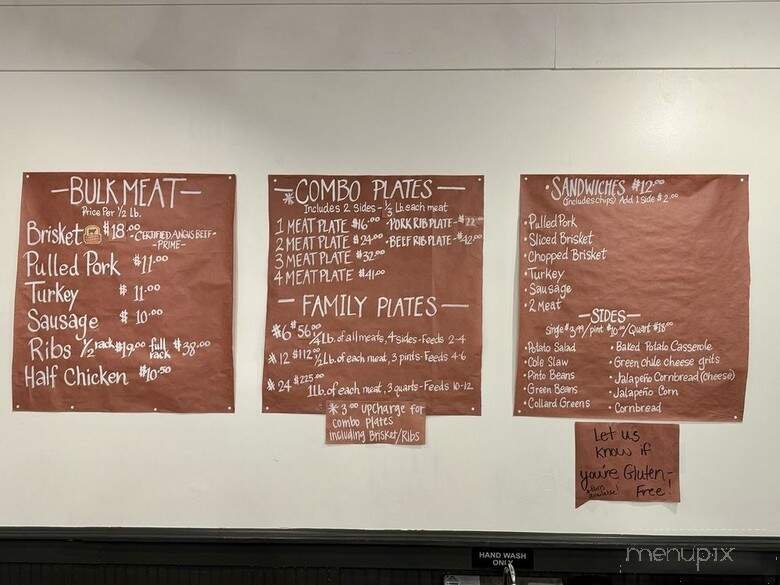 BULK MEAT
Price Per 1/2 lb.
Brisket $18.00 -CERTIFIED ANGUS BEEF-
-PRIME-
Pulled Pork $11.00
Turkey $11.00
Sausage $10.00
Ribs 1/2 rack $19.00 full rack $38.00
Half Chicken $10.50
*COMBO PLATES
Includes 2 Sides - 1/3 lb. each meat
1 MEAT PLATE $16.00 •PORK RIB PLATE-$22.00
2 MEAT PLATE $24.00 •BEEF RIB PLATE-$42.00
3 MEAT PLATE $32.00
4 MEAT PLATE $41.00
FAMILY PLATES
*6 $56.00 1/4 lb. of all meats, 4 Sides - Feeds 2-4
*12 $112.00 1/2 lb. of each meat, 3 pints - Feeds 4-6
*24 $225.00 1 lb. of each meat, 3 quarts - Feeds 10-12
*3.00 upcharge for
combo plates
including Brisket/Ribs
•SANDWICHES $12.00
(includes chips) Add 1 side $2.00
•Pulled Pork
•Sliced Brisket
•Chopped Brisket
•Turkey
•Sausage
•2 Meat
-SIDES-
single $3.99/pint $10.00/Quart $18.00
•Potato Salad
•Cole Slaw
•Pinto Beans
•Green Beans
•Collard Greens
•Baked Potato Casserole
•Green chile cheese grits
•Jalapeño Cornbread (cheese)
•Jalapeño Corn
•Cornbread
Let us
know if
you're Gluten-
Free!
HAND WASH
ONLY
menupix